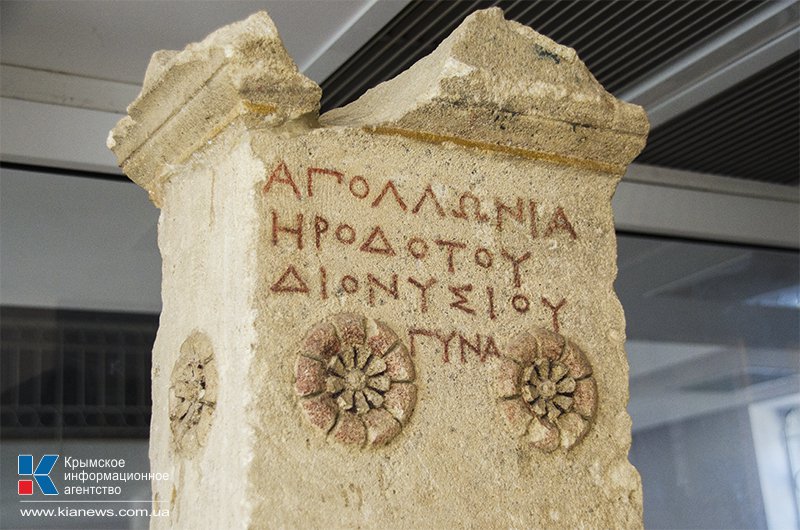 ΑΠΟΛΛΩΝΙΑ
ΗΡΟΔΟΤΟΥ
ΔΙΟΝΥΣΙΟΥ
ΓΥΝΑ
Крымское
информационное
агентство
www.kianews.com.ua